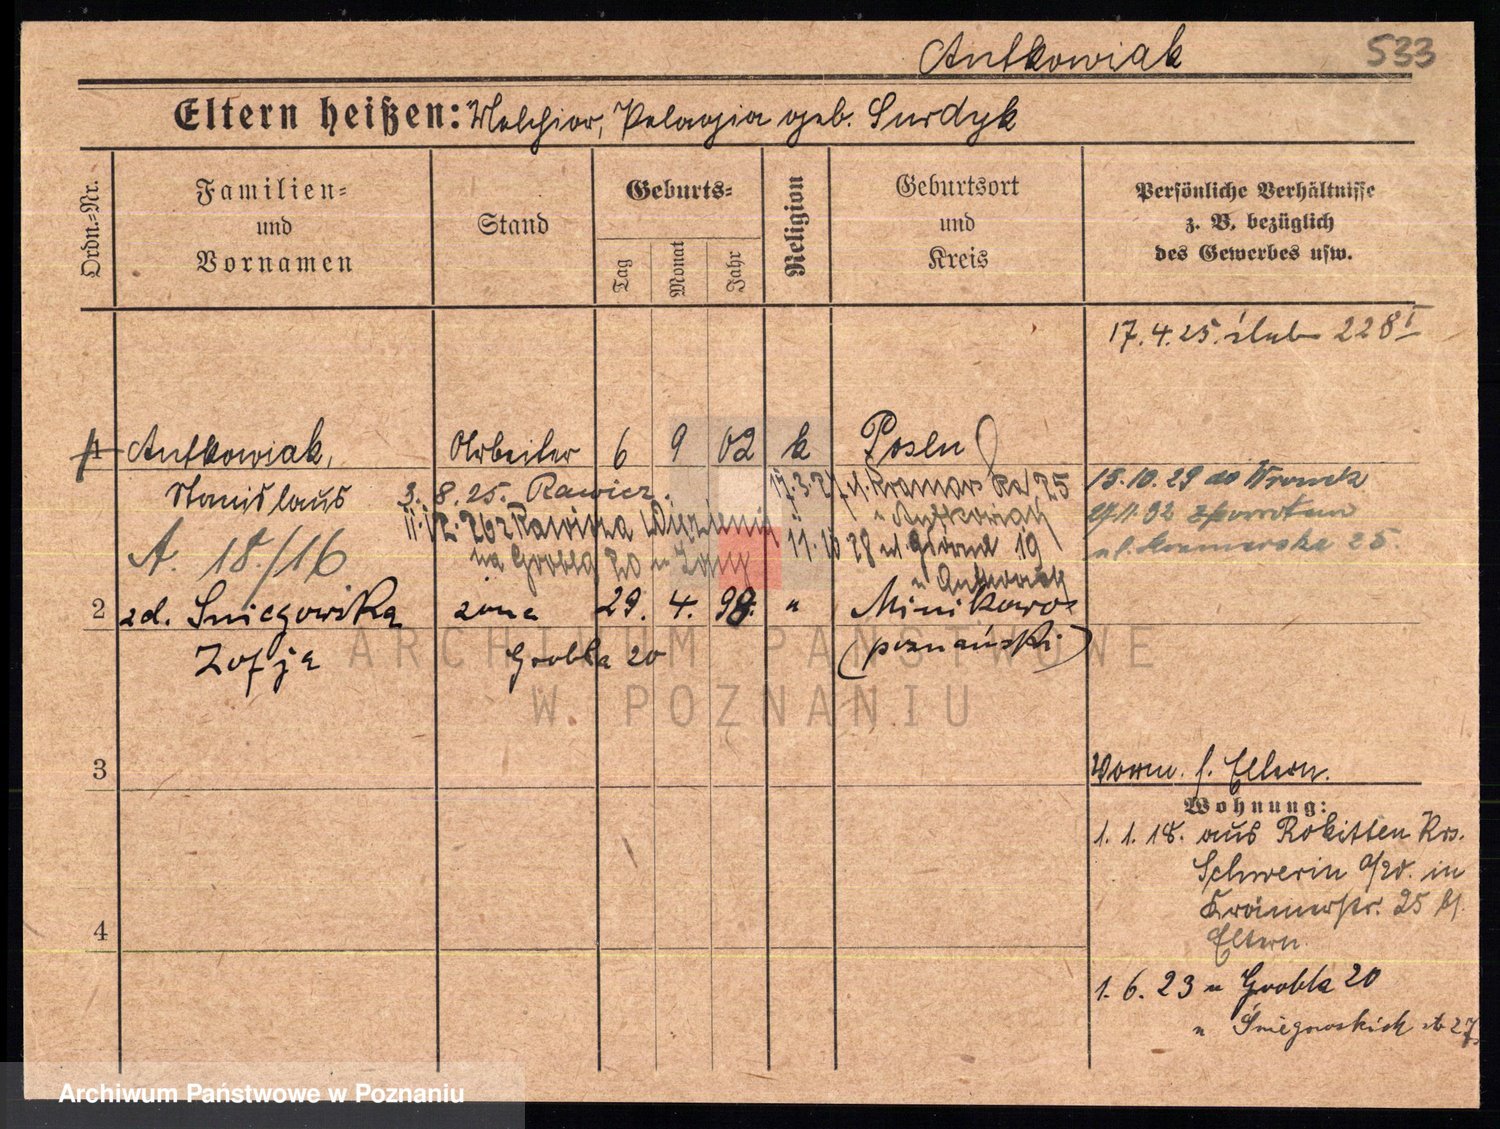 Antkowiak 533
Eltern heißen: Melchior, Pelagia geb. Surdyk
Ordn.-Nr.
Familien-
und
Vornamen
Stand
Geburts-
Tag
Monat
Jahr
Religion
Geburtsort
und
Kreis
Persönliche Verhältnisse
z. B. bezüglich
des Gewerbes usw.
17.4.25. ślub 228 I
1 Antkowiak, Arbeiter 6 9 02 k Posen
Stanislaus 3. 8. 25. Rawicz. 17.3.27 ul. Kramarska 25
u Antkowiak
15.10.29 do Wronek
11.12.26 z Rawicza Więzienia
na Grobla 20 u żony
11.10.28 ul. Górna 19
u Antkowiak
z powrotem
ul. Kramarska 25.
A. 18./16
2 zd. Śniegowska żona 29. 4. 98. " Minikowo
Zofja Grobla 20 (poznański)
ARCHIWUM PAŃSTWOWE
W POZNANIU
3
Vorm. s. Eltern.
Wohnung:
1. 1. 18. aus Rokitten Krs.
Schwerin a/W. in
Krämerstr. 25 b/
Eltern.
4
1. 6. 23 u Grobla 20
u Śniegowskich
Archiwum Państwowe w Poznaniu